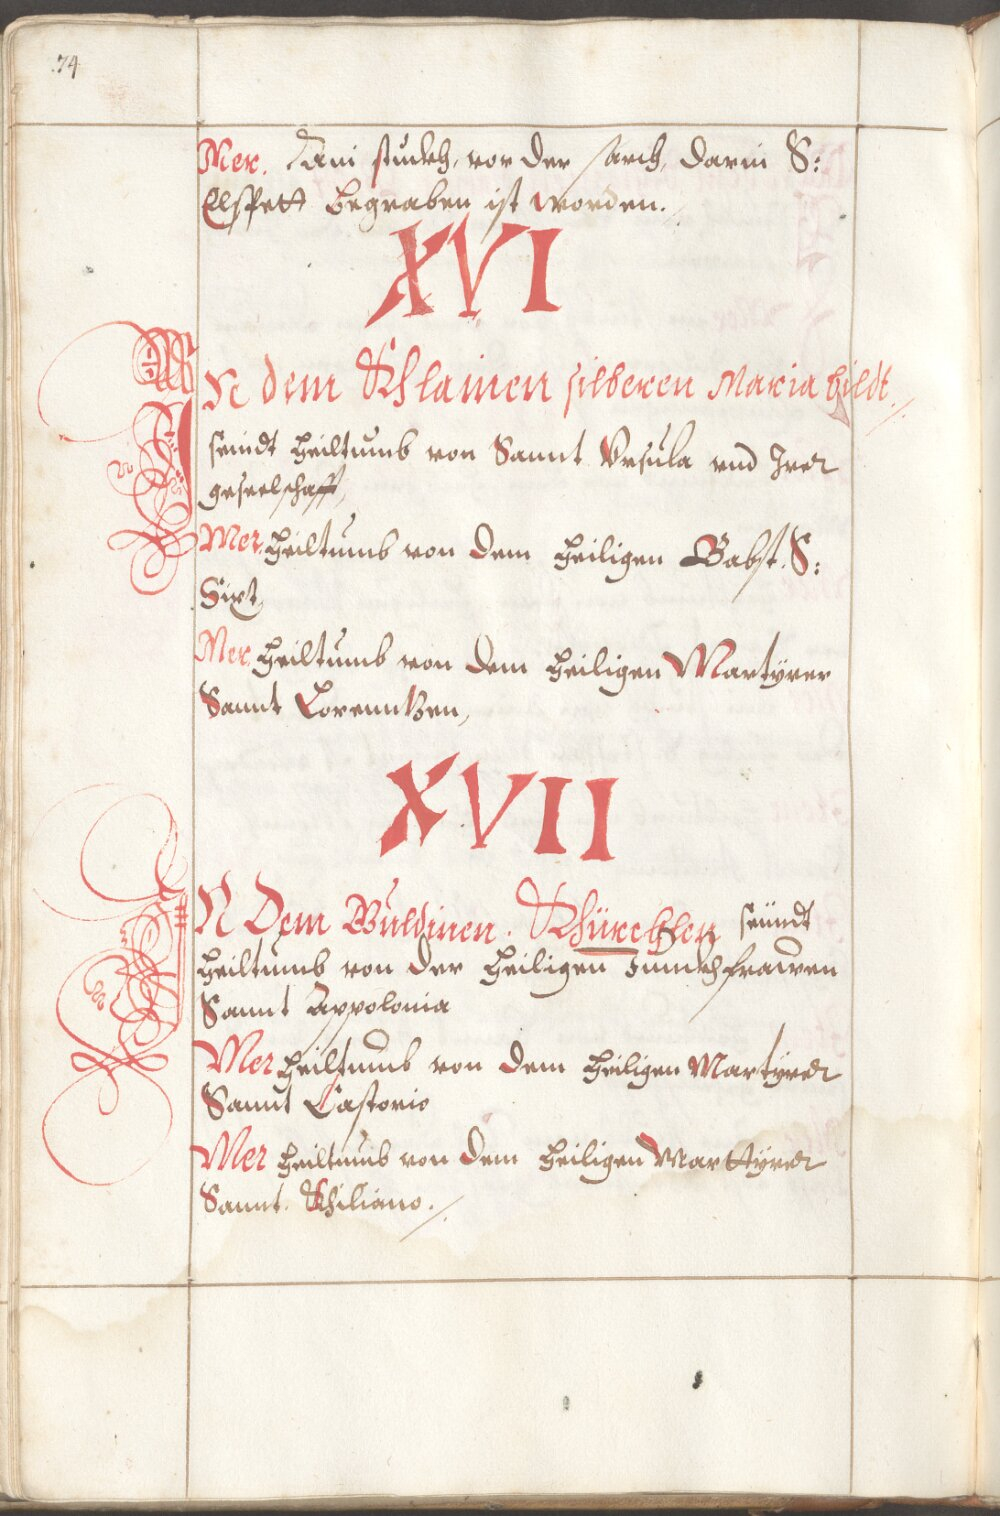 74
Mer. Ain stuckh, vor der sarch, darin S:
Elspett begraben ist worden.
XVI
IN dem Khlainen silberen Maria bildt.
seindt heiltumb von Sannt Vrsula vnd Irer
geselschafft,
Mer, heiltumb von dem heiligen Babst. S:
Sixt,
Mer, heiltumb von dem heiligen Martÿrer
Sannt Lorenntzen,
XVII
IN Dem Guldinen. Khürchlen seindt
heiltumb von der heiligen Junckhfrawen
Sannt Appolonia
Mer heiltumb von dem heiligen Martÿrer
Sannt Castorio
Mer heiltumb von dem heiligen Marttÿrer
Sannt. Khiliano.